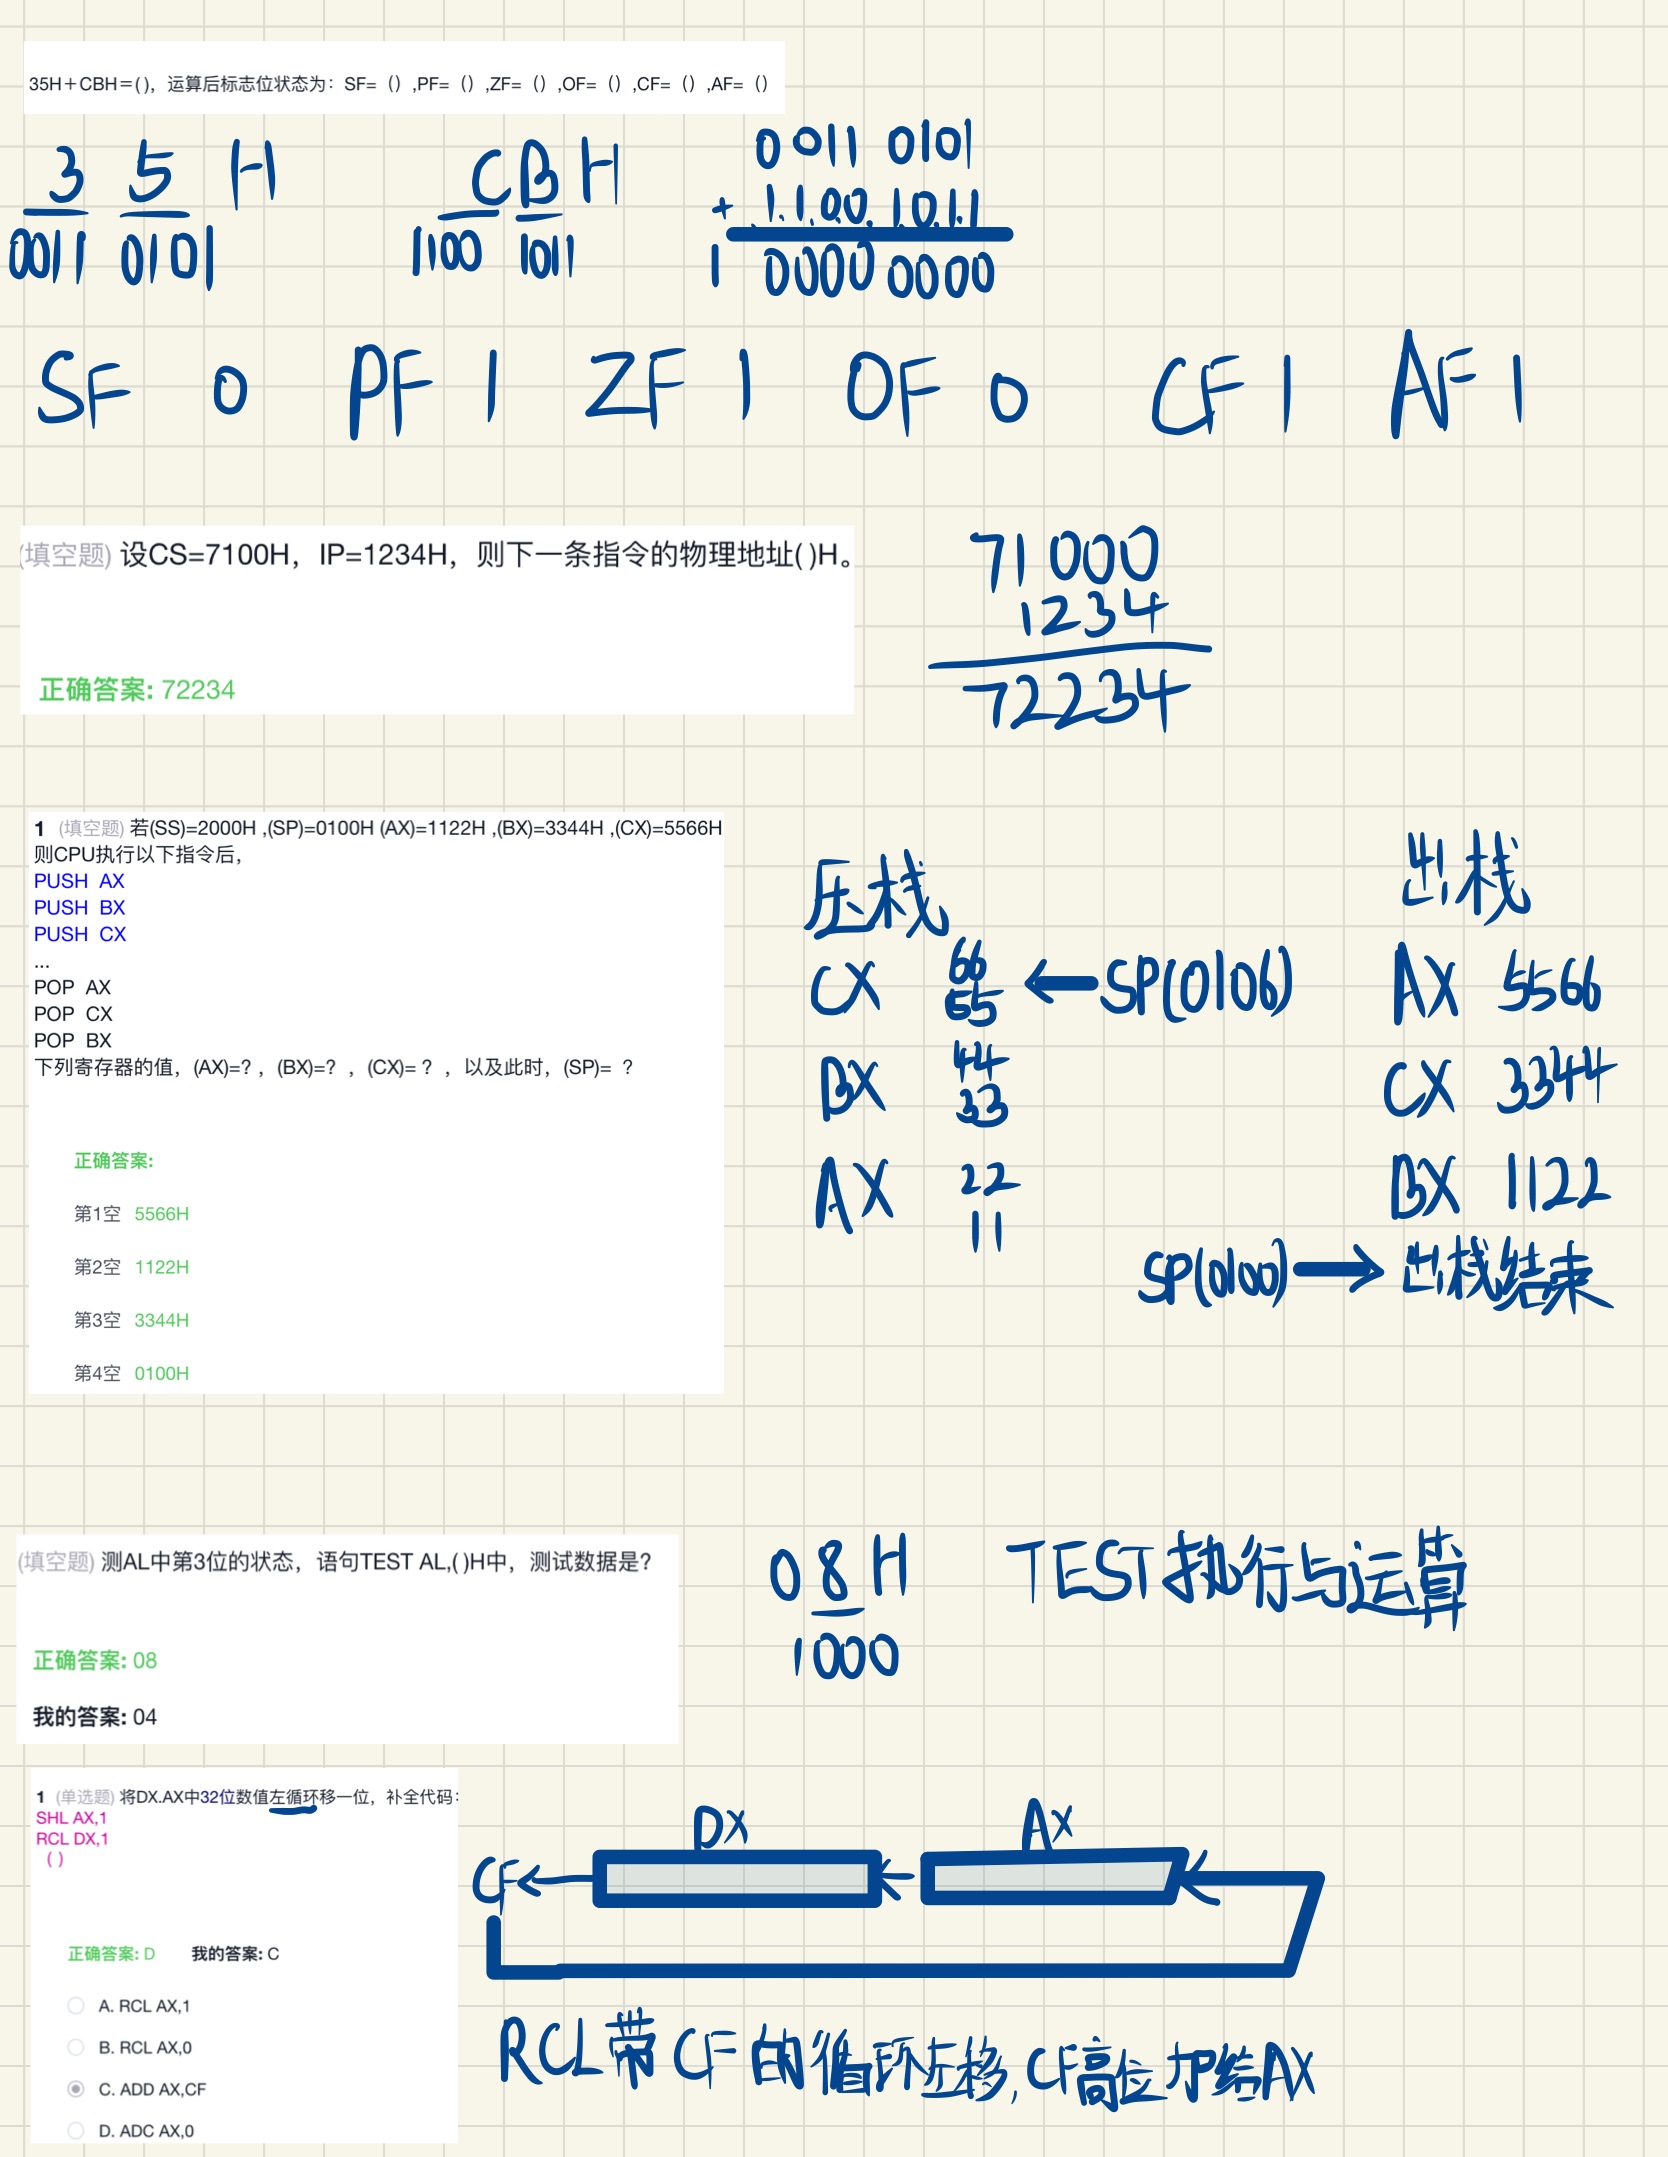 35H＋CBH＝( )，运算后标志位状态为：SF=（）,PF=（）,ZF=（）,OF=（）,CF=（）,AF=（）
3 5 H
0011 0101
CBH
1100 1011
0011 0101
+ 1100 1011
1 0000 0000
SF 0 PF 1 ZF 1 OF 0 CF 1 AF 1
(填空题) 设CS=7100H，IP=1234H，则下一条指令的物理地址( )H。
正确答案: 72234
71000
1234
72234
1 (填空题) 若(SS)=2000H ,(SP)=0100H (AX)=1122H ,(BX)=3344H ,(CX)=5566H
则CPU执行以下指令后，
PUSH AX
PUSH BX
PUSH CX
...
POP AX
POP CX
POP BX
下列寄存器的值，(AX)=? ，(BX)=? ，(CX)= ? ，以及此时，(SP)= ？
正确答案:
第1空 5566H
第2空 1122H
第3空 3344H
第4空 0100H
压栈
CX 66
55
←SP(0106)
BX 44
33
AX 22
11
出栈
AX 5566
CX 3344
BX 1122
SP(0100)→出栈结束
(填空题) 测AL中第3位的状态，语句TEST AL,( )H中，测试数据是?
正确答案: 08
我的答案: 04
08H
1000
TEST执行与运算
1 (单选题) 将DX.AX中32位数值左循环移一位，补全代码：
SHL AX,1
RCL DX,1
( )
正确答案: D 我的答案: C
A. RCL AX,1
B. RCL AX,0
C. ADD AX,CF
D. ADC AX,0
DX AX
CF
RCL带CF的循环左移,CF高位加给AX